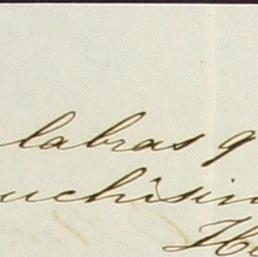 labras q
uchisim
He